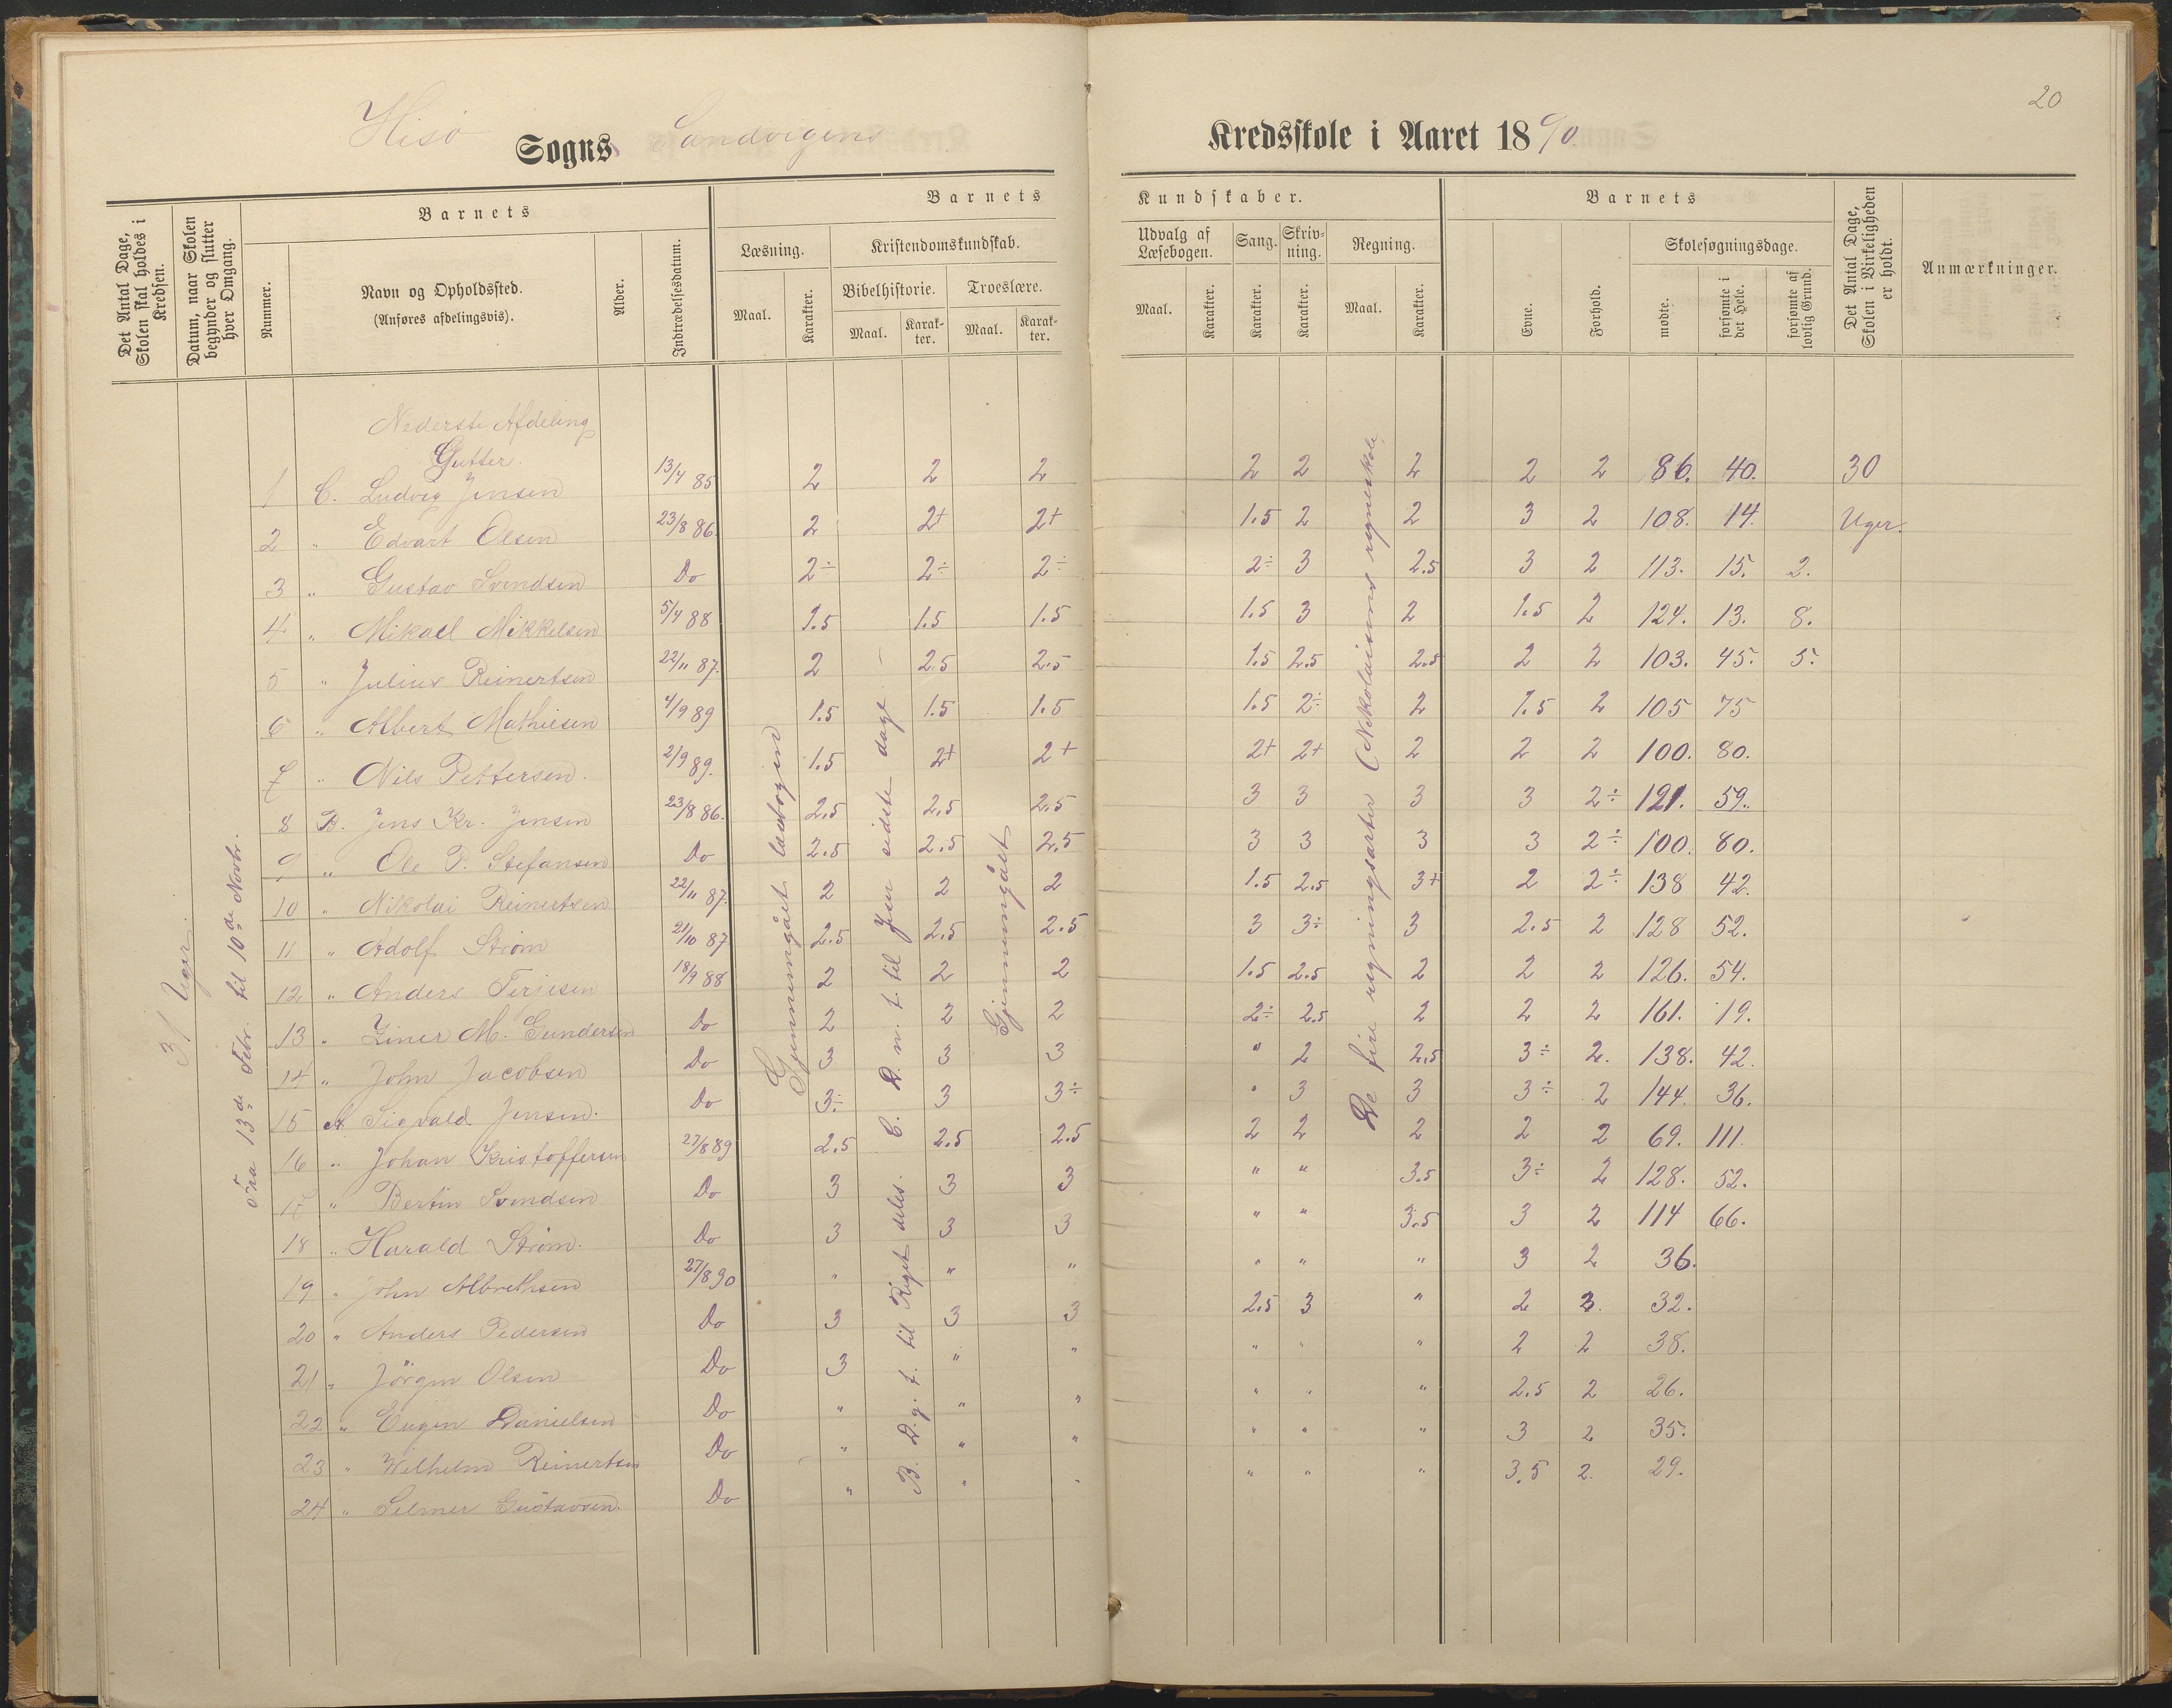 20
Hisö Sogns Sandvigens Kredsskole i Aaret 1890.
Det Antal Dage, Skolen skal holdes i Kredsen.
Datum, naar Skolen begynder og slutter hver Omgang.
Barnets
Nummer.
Navn og Opholdssted.
(Anføres afdelingsvis).
Alder.
Indtrædelsesdatum.
Barnets Kundskaber.
Læsning.
Maal.
Karakter.
Kristendomskundskab.
Bibelhistorie.
Maal.
Karakter.
Troeslære.
Maal.
Karakter.
Udvalg af Læsebogen.
Maal.
Karakter.
Sang.
Karakter.
Skrivning.
Karakter.
Regning.
Maal.
Karakter.
Barnets
Evne.
Forhold.
Skolesøgningsdage.
mødte.
forsømte i det Hele.
forsømte af lovlig Grund.
Det Antal Dage, Skolen i Virkeligheden er holdt.
Anmærkninger.
31 Uger.
fra 13de Febr. til 10de Novbr.
Gjennemgået læsebogen
B. D. g. t. til Riget deles. C. D. n. t. til Jesu sidste dage.
Gjennemgået
De fire regningsarter (Nikolaisens regneskole)
Nederste Afdeling
Gutter.
1 C. Ludvig Jensen 13/4 85 2 2 2 2 2 2 2 2 86. 40. 30
2 " Edvart Olsen 23/8 86. 2 2+ 2+ 1.5 2 2 3 2 108. 14. Uger.
3 " Gustav Svendsen Do 2÷ 2÷ 2÷ 2÷ 3 2.5 3 2 113. 15. 2.
4 " Mikael Mikkelsen 5/4 88 1.5 1.5 1.5 1.5 3 2 1.5 2 124. 13. 8.
5 " Julius Reinertsen 22/11 87. 2 2.5 2.5 1.5 2.5 2.5 2 2 103. 45. 5.
6 " Albert Mathiesen 4/9 89 1.5 1.5 1.5 1.5 2÷ 2 1.5 2 105 75
7 " Nils Pettersen. 2/9 89. 1.5 2+ 2+ 2+ 2+ 2 2 2 100. 80.
8 B. Jens Kr. Jensen 23/8 86. 2.5 2.5 2.5 3 3 3 3 2÷ 121. 59.
9 " Ole P. Stefansen Do 2.5 2.5 2.5 3 3 3 3 2÷ 100. 80.
10 " Nikolai Reinertsen 22/11 87. 2 2 2 1.5 2.5 3+ 2 2÷ 138 42.
11 " Adolf Strøm 21/10 87 2.5 2.5 2.5 3 3÷ 3 2.5 2 128 52.
12 " Anders Terjesen 18/9 88 2 2 2 1.5 2.5 2 2 2 126. 54.
13 " Einer M. Gundersen Do 2 2 2 2÷ 2.5 2 2 2 161. 19.
14 " John Jacobsen Do 3 3 3 " 2 2.5 3÷ 2. 138. 42.
15 A Sigvald Jensen. Do 3÷ 3 3÷ " 3 3 3÷ 2 144. 36.
16 " Johan Kristoffersen 27/8 89 2.5 2.5 2.5 2 2 2 2 2 69. 111.
17 " Bertin Svendsen Do 3 3 3 " " 3.5 3÷ 2 128. 52.
18 " Harald Strøm. Do 3 3 3 " " 3.5 3 2 114 66.
19 " John Albrethsen 27/8 90 " " " " " " 3 2 36.
20 " Anders Pedersen Do 3 3 3 2.5 3 " 2 2. 32.
21 " Jörgen Olsen Do 3 " " " " " 2 2 38.
22 " Eugen Danielsen Do " " " " " " 2.5 2 26.
23 " Wilhelm Reinertsen Do " " " " " " 3 2 35.
24 " Selmer Gustavsen. Do " " " " " " 3.5 2. 29.